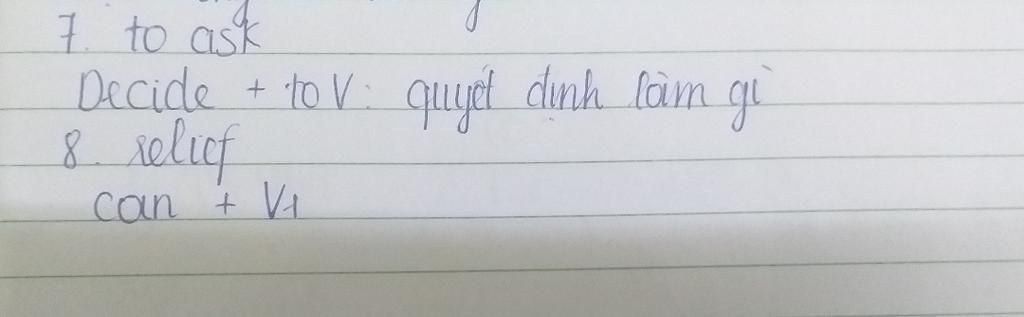 7. to ask
Decide + to V: quyết định làm gì
8. relief
can + V1